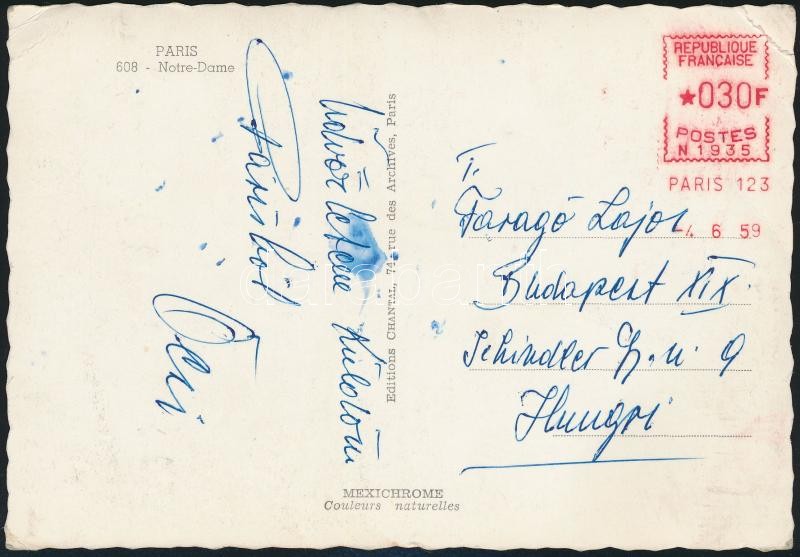 PARIS
608 - Notre-Dame
Üdvözletem küldöm
Párisból
Öcsi
Editions CHANTAL, 74, rue des Archives, Paris
REPUBLIQUE
FRANÇAISE
★030F
POSTES
N 1935
PARIS 123
-4 6 59
T.
Faragó Lajos
Budapest XIX.
Schindler u 9
Hungri
MEXICHROME
Couleurs naturelles